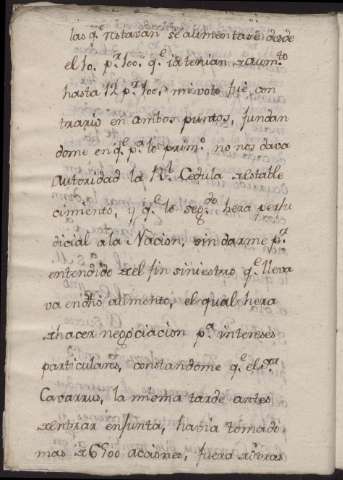 las q.e restavan se alimentase desde
el 10. p.r 100. q.e ia tenian de aum.to
hasta 12 p.r 100, mi voto fue con
trario en ambos puntos, fundan
dome en q.e p.a lo prim.o no nos dava
autoridad la R.l Cedula de establе
cimiento, y q.e lo seg.do hera perju
dicial a la Nacion, sin darme p.r
entendido del fin siniestro q.e lleva
va en dho alimento, el qual hera
de hacer negociacion p.r intereses
particulares, constandome q.e el
Cavarrus, la misma tarde antes
de entrar en Junta, havia tomado
mas de 6500 acciones, fuera de otras